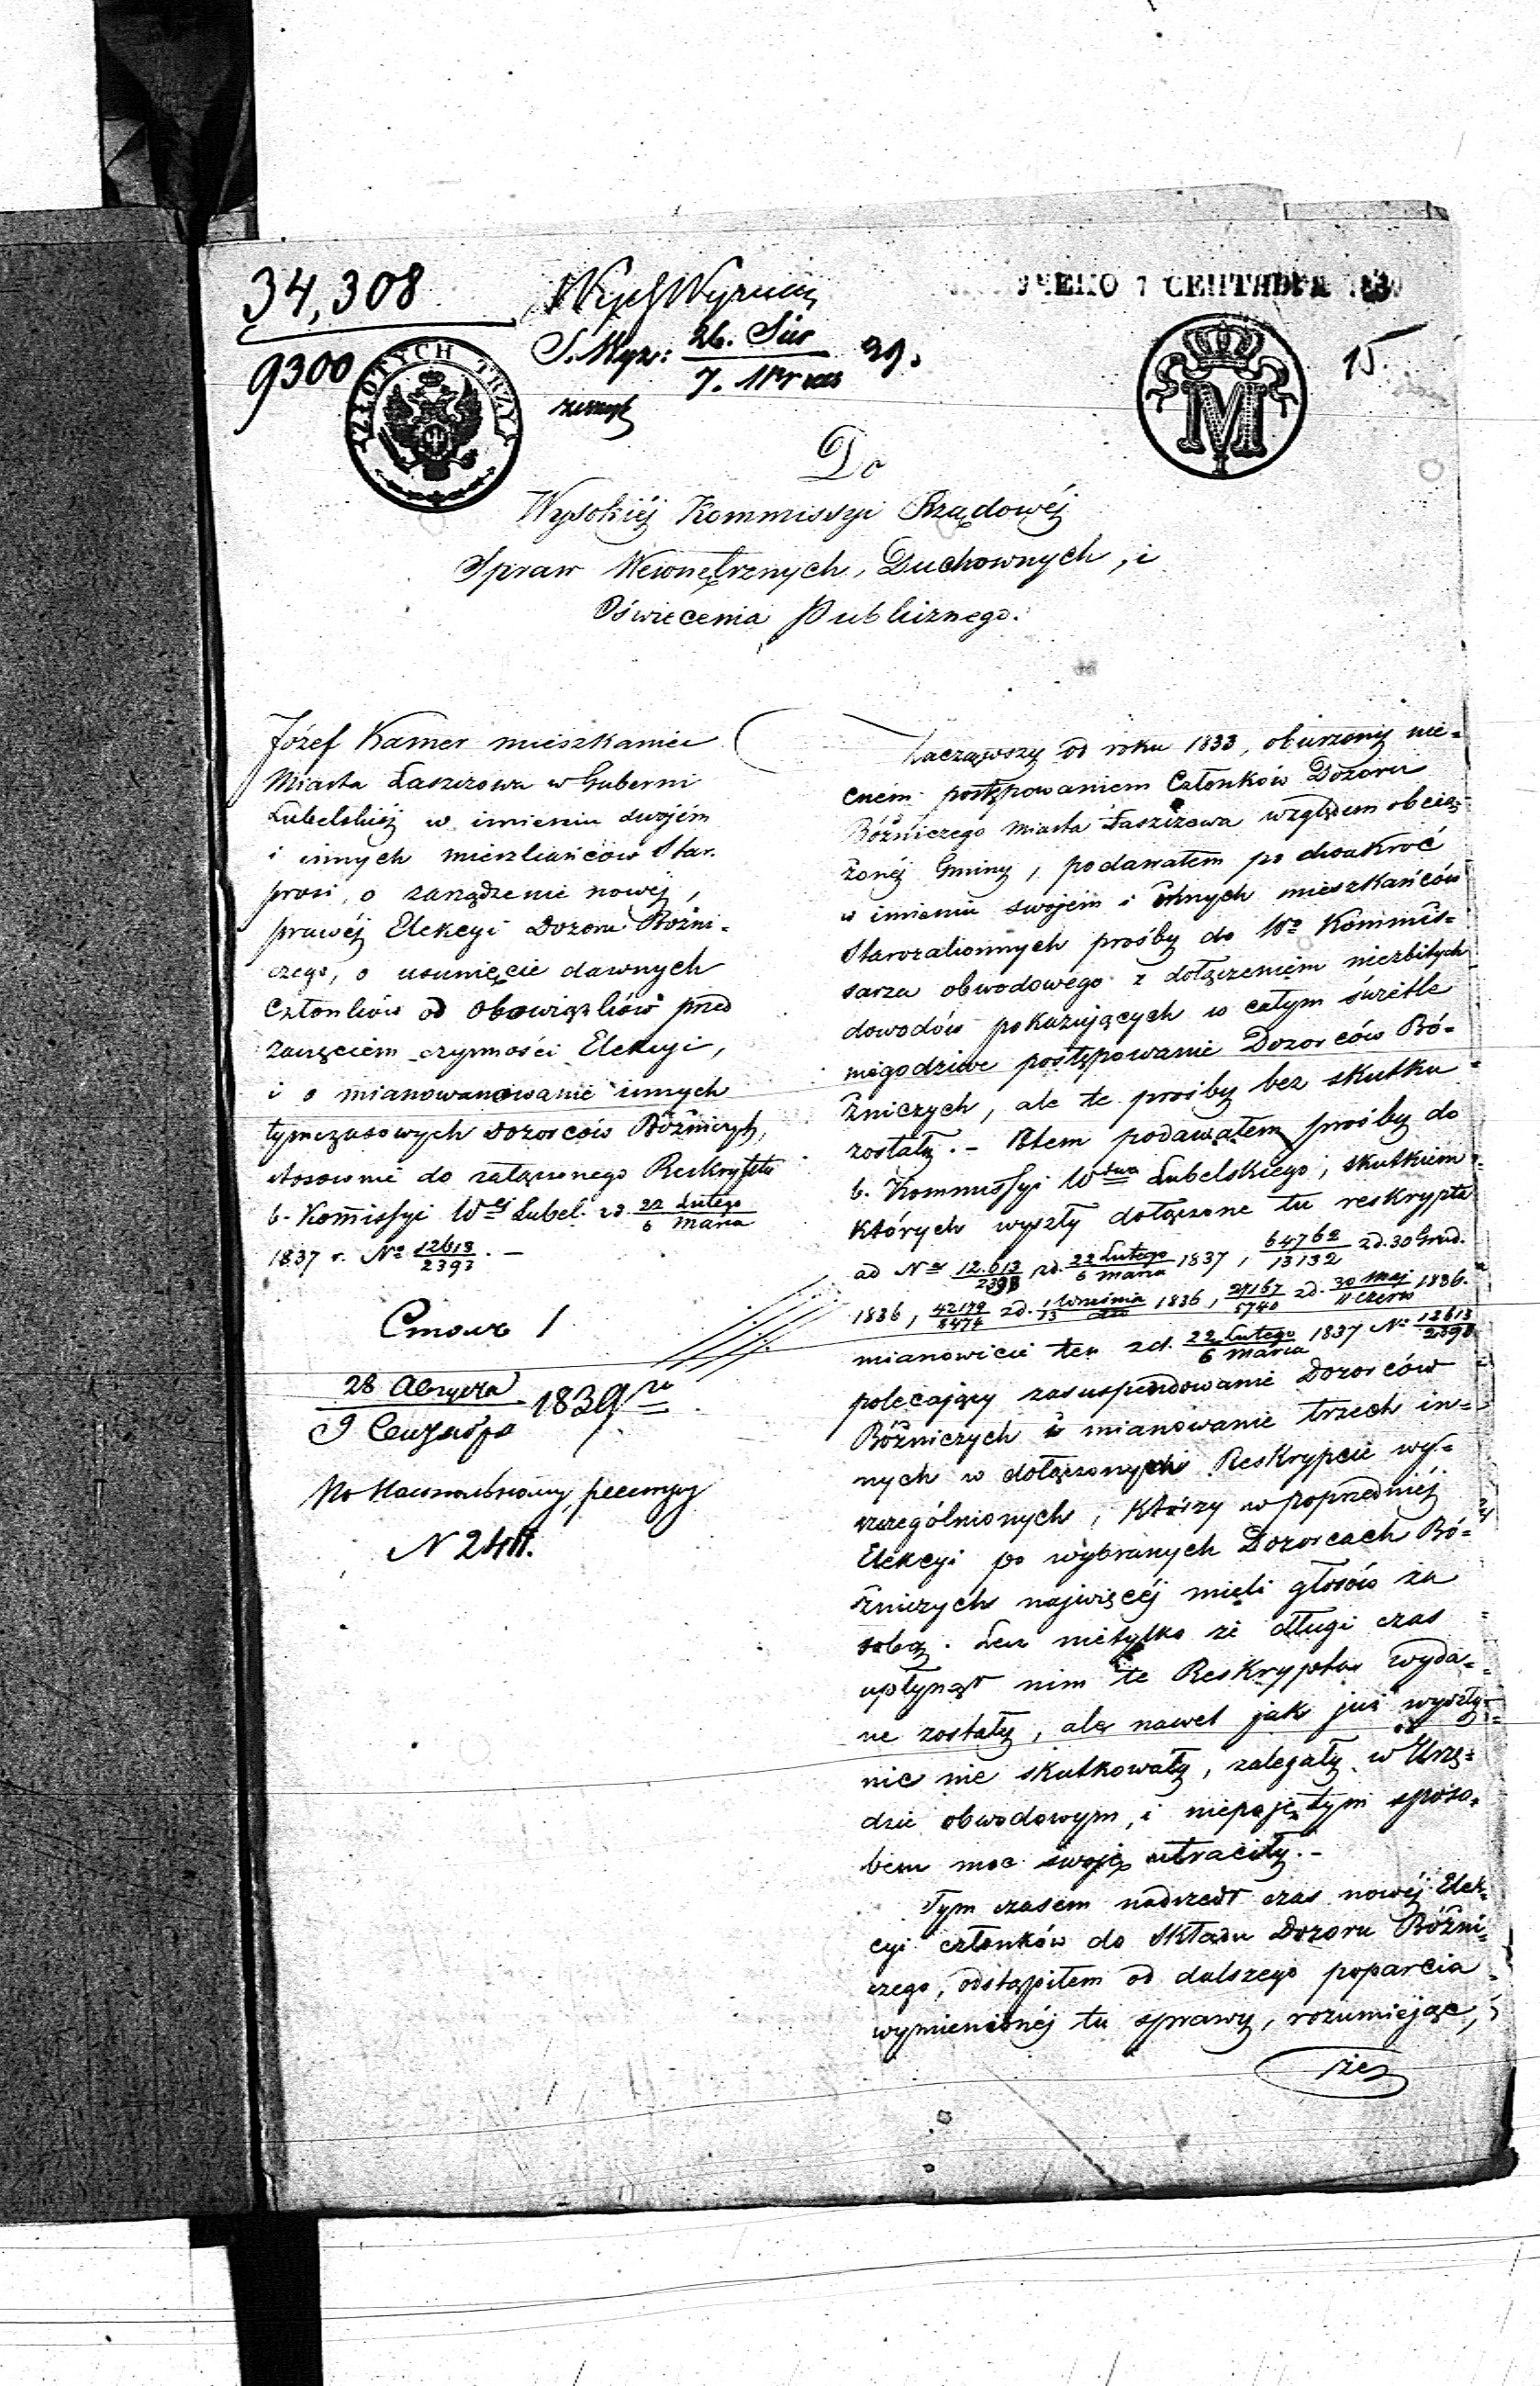 34,308
9300
ZŁOTYCH TRZY
26.
7.
39.
СЕНТЯБРЯ
M
15
Do
Wysokiéj Kommissyi Rządowéj
Spraw Wewnętrznych, Duchownych, i
Oświecenia Publicznego.
Józef Kamer mieszkaniec
Miasta Łaszczowa w Gubernii
Lubelskiéj w imieniu swojém
i innych mieszkańców Star.
prosi, o zarządzenie nowéj,
prawéj Elekcyi Dozoru Bóźni-
czego, o usunięcie dawnych
Członków od obowiązków przed
zaczęciem czynności Elekcyi,
i o mianowanowanie innych
tymczasowych Dozorców Bóźniczych,
stosownie do załączonego Reskryptu
b. Komissyi Wej Lubel. zd 22 Lutego / 6 Marca
1837 r. No 12613 / 2393. —
28 Августа / 9 Сентября 1839 го
N 2411.
Zacząwszy od roku 1833, oburzony nie-
cném postępowaniem Członków Dozoru
Bóźniczego Miasta Łaszczowa względem obcią-
żonéj Gminy, podawałem po dwakroć
w imieniu swojém i innych mieszkańców
Starozakonnych prośby do Wo Kommis-
sarza obwodowego z dołączeniem niezbitych
dowodów pokazujących w całym świetle
niegodziwe postępowanie Dozorców Bó-
źniczych, ale te prośby bez skutku
zostały. - Potem podawałem prośby do
b. Kommissyi Wtwa Lubelskiego, skutkiem
których wyszły dołączone tu reskrypta
ad No 12.613 / 2393 zd. 22 Lutego / 6 Marca 1837, 64762 / 13132 zd. 30 Grud.
1836, 42179 / 8474 zd. 1 Września / 13 1836, 27167 / 5740 zd. 30 Maj / 11 Czerw 1836.
mianowicie ten zd. 22 Lutego / 6 Marca 1837 No 12613 / 2393
polecający zasuspendowanie Dozorców
Bóźniczych i mianowanie trzech in-
nych w dołączonym Reskrypcie wy-
szczególnionych, którzy w poprzedniéj
Elekcyi po wybranych Dozorcach Bó-
źniczych najwięcéj mieli głosów za
sobą. Lecz nietylko że długi czas
upłynął nim te Reskrypta wyda-
ne zostały, ale nawet jak już wyszły
nic nie skutkowały, zalegały w Urzę-
dzie obwodowym, i niepojętym sposo-
bem moc swoję utraciły. -
Tym czasem nadszedł czas nowéj Elek-
cyi członków do Składu Dozoru Bóźni-
czego, odstąpiłem od dalszego poparcia
wymienionéj tu sprawy, rozumiejąc,
że